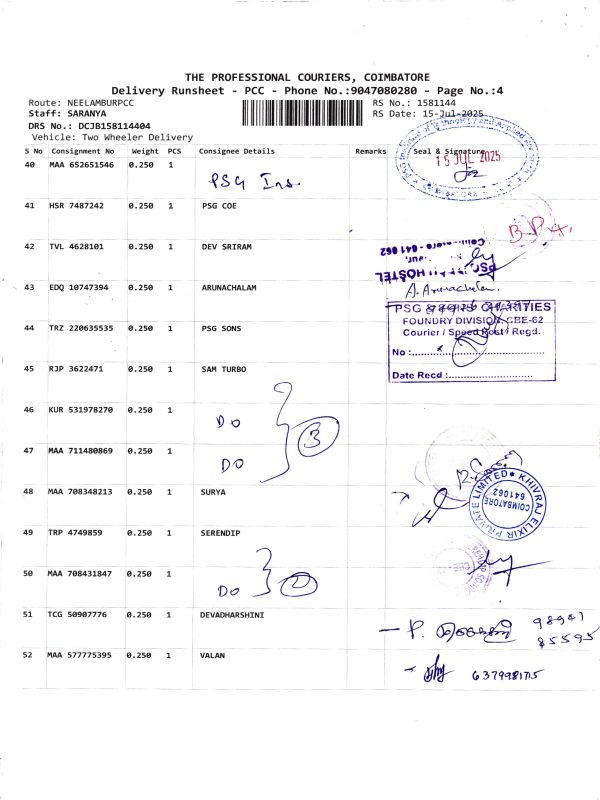 THE PROFESSIONAL COURIERS, COIMBATORE
Delivery Runsheet - PCC - Phone No.:9047080280 - Page No.:4
Route: NEELAMBURPCC RS No.: 1581144
Staff: SARANYA RS Date: 15-Jul-2025
DRS No.: DCJB158114404
Vehicle: Two Wheeler Delivery
S No Consignment No Weight PCS Consignee Details Remarks Seal & Signature
15 JUL 2025
40 MAA 652651546 0.250 1 PSG Ins.
41 HSR 7487242 0.250 1 PSG COE
42 TVL 4628101 0.250 1 DEV SRIRAM
641 062
HOSTEL
43 EDQ 10747394 0.250 1 ARUNACHALAM A. Arunachalam.
44 TRZ 220635535 0.250 1 PSG SONS
PSG & SONS CHARITIES
FOUNDRY DIVISION, CBE-62
Courier / Speed Post / Regd.
No :
Date Recd :
45 RJP 3622471 0.250 1 SAM TURBO
46 KUR 531978270 0.250 1 DO
3
47 MAA 711480869 0.250 1 DO
48 MAA 708348213 0.250 1 SURYA
KHIVRAJ ELIXIR PRIVATE LIMITED
COIMBATORE
641062
49 TRP 4749859 0.250 1 SERENDIP
50 MAA 708431847 0.250 1 DO
2
51 TCG 50907776 0.250 1 DEVADHARSHINI
52 MAA 577775395 0.250 1 VALAN